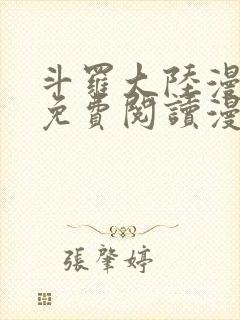 斗羅大陸漫
免費閱讀漫
張肇婷